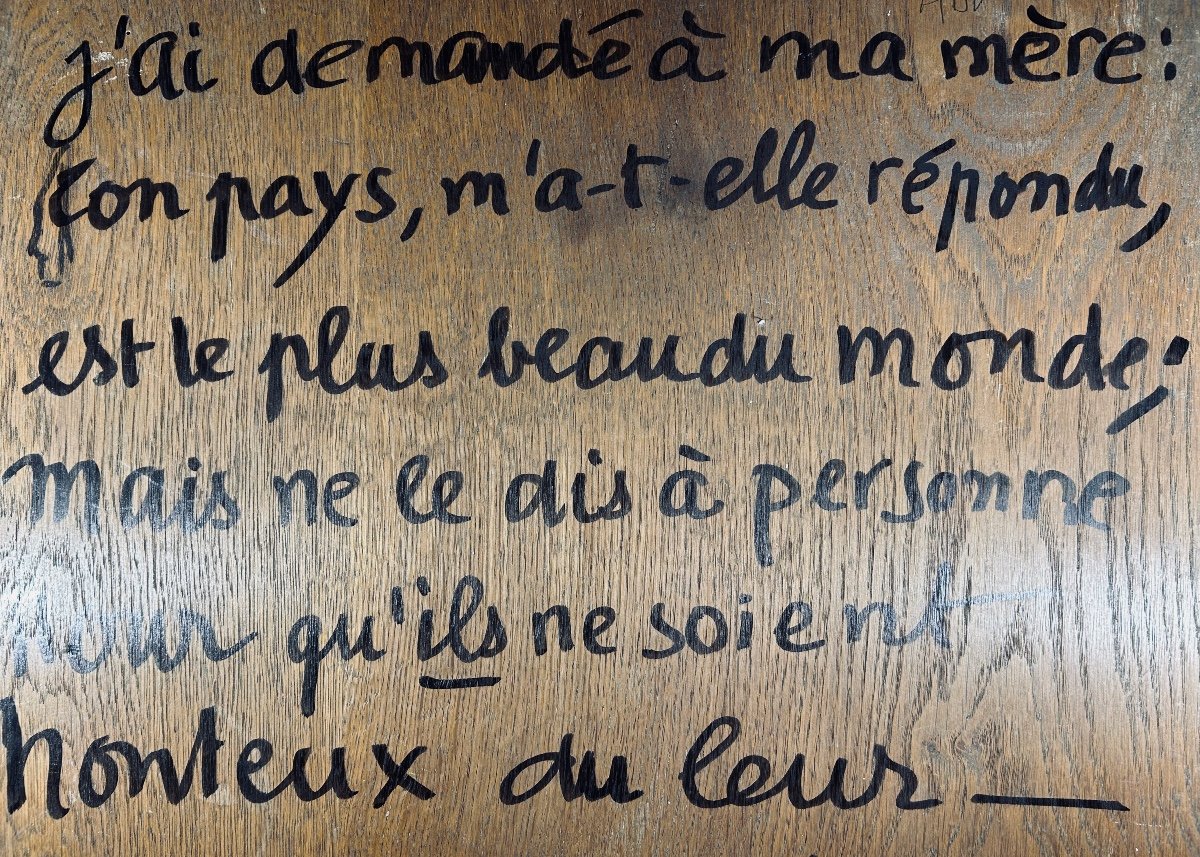 j'ai demandé à ma mère :
ton pays, m'a-t-elle répondu,
est le plus beau du monde ;
mais ne le dis à personne
pour qu'ils ne soient
honteux du leur —